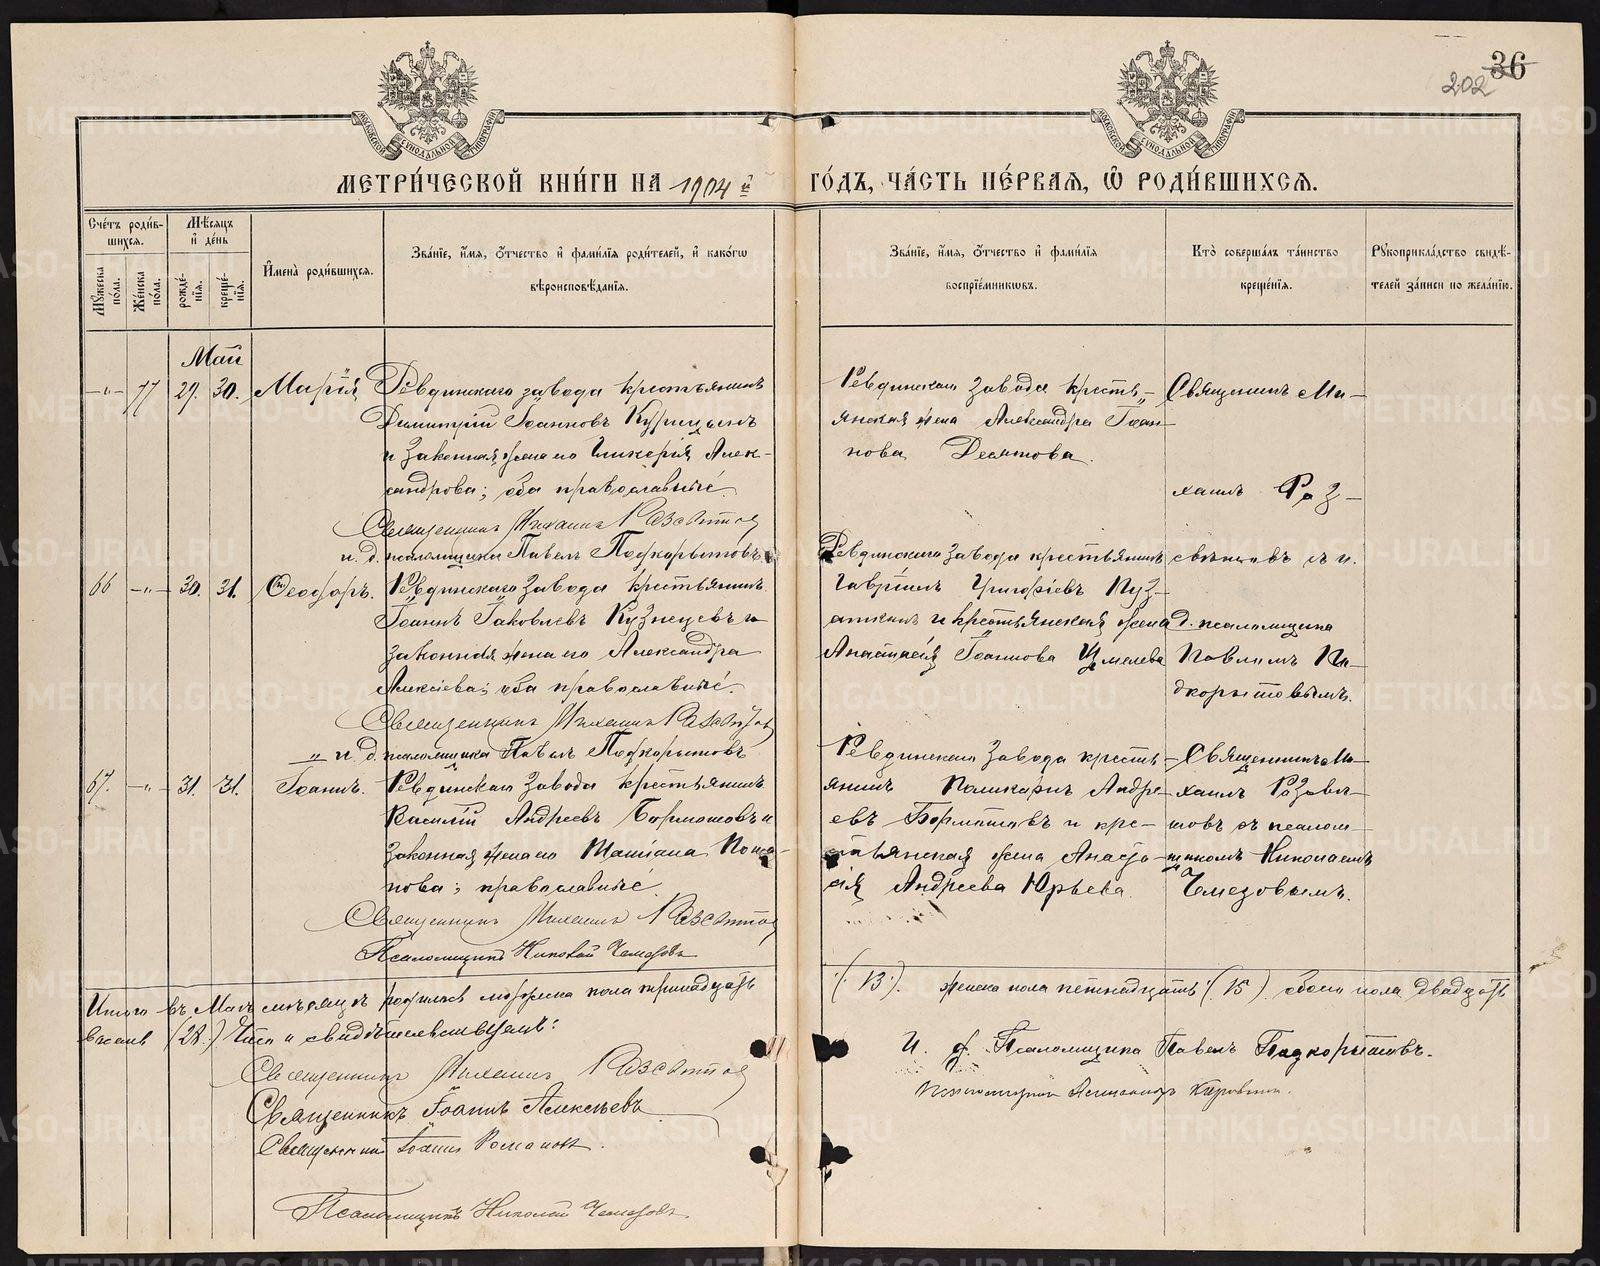 36
202
МЕТРИ́ЧЕСКОЙ КНИ́ГИ НА 1904й ГО́ДЪ, ЧА́СТЬ ПЕ́РВАЯ, Ѡ РОДИ́ВШИХСЯ.
Сче́тъ роди́в-
шихся.
Мꙋ́жеска по́ла.
Же́нска по́ла.
Мѣ́сяцъ
и҆ де́нь
рожде́-
нїя.
креще́-
нїя.
И҆мена̀ роди́вшихся.
Зва́нїе, и҆́мя, ѻ҆́тчество и҆ фами́лїя роди́телей, и҆ како́гѡ
вѣроисповѣ́данїя.
Зва́нїе, и҆́мя, ѻ҆́тчество и҆ фами́лїя
воспрїе́мникѡвъ.
Кто̀ соверша́лъ та́инство
креще́нїя.
Рꙋкоприкла́дство свидѣ́-
телей за́писи по жела́нїю.
Май
—"— 77 29. 30. Марія
Ревдинскаго завода крестьянинъ
Димитрій Іоанновъ Курицынъ
и законная жена его Гликерія Алек-
сандрова; оба православные.
Священникъ Михаилъ Развѣтовъ
и. д. псаломщика Павелъ Подкорытовъ
Ревдинскаго завода кресть-
янская жена Александра Іоан-
нова Десятова.
Священникъ Ми-
хаилъ Раз-
66 —"— 30. 31. Ѳеодоръ.
Ревдинскаго завода крестьянинъ
Іоаннъ Іаковлевъ Кузнецовъ и
законная жена его Александра
Алексіева; оба православные.
Священникъ Михаилъ Развѣтовъ
" и. д. псаломщика Павелъ Подкорытовъ
Ревдинскаго завода крестьянинъ
Гавріилъ Григоріевъ Пуз-
аткинъ и крестьянская жена
Анастасія Іоаннова Шмелева
свѣтовъ съ и.
д. псаломщика
Павломъ По-
дкорытовымъ.
67. —"— 31. 31. Іоаннъ.
Ревдинскаго завода крестьянинъ
Василій Андреевъ Бормотовъ и
законная жена его Татіана Пота-
пова; православные.
Священникъ Михаилъ Развѣтовъ
Псаломщикъ Николай Чемезовъ
Ревдинскаго завода кресть-
янинъ Поликарпъ Андре-
евъ Бормотовъ и кре-
стьянская жена Анаста-
сія Андреева Юрьева.
Священникъ Ми-
хаилъ Развѣ-
товъ съ псалом-
щикомъ Николаемъ
Чемезовымъ.
Итого въ Маѣ мѣсяцѣ родилось мужеска пола тринадцать (13). женска пола пятнадцать (15) обоего пола двадцать
восемь (28.)
свидѣтельствуемъ:
Священникъ Михаилъ Развѣтовъ
Священникъ Іоаннъ Алексѣевъ
Священникъ Іоаннъ Романовъ
Псаломщикъ Николай Чемезовъ
И. д. Псаломщика Павелъ Подкорытовъ.
Псаломщикъ Александръ
METRIKI.GASO-URAL.RU